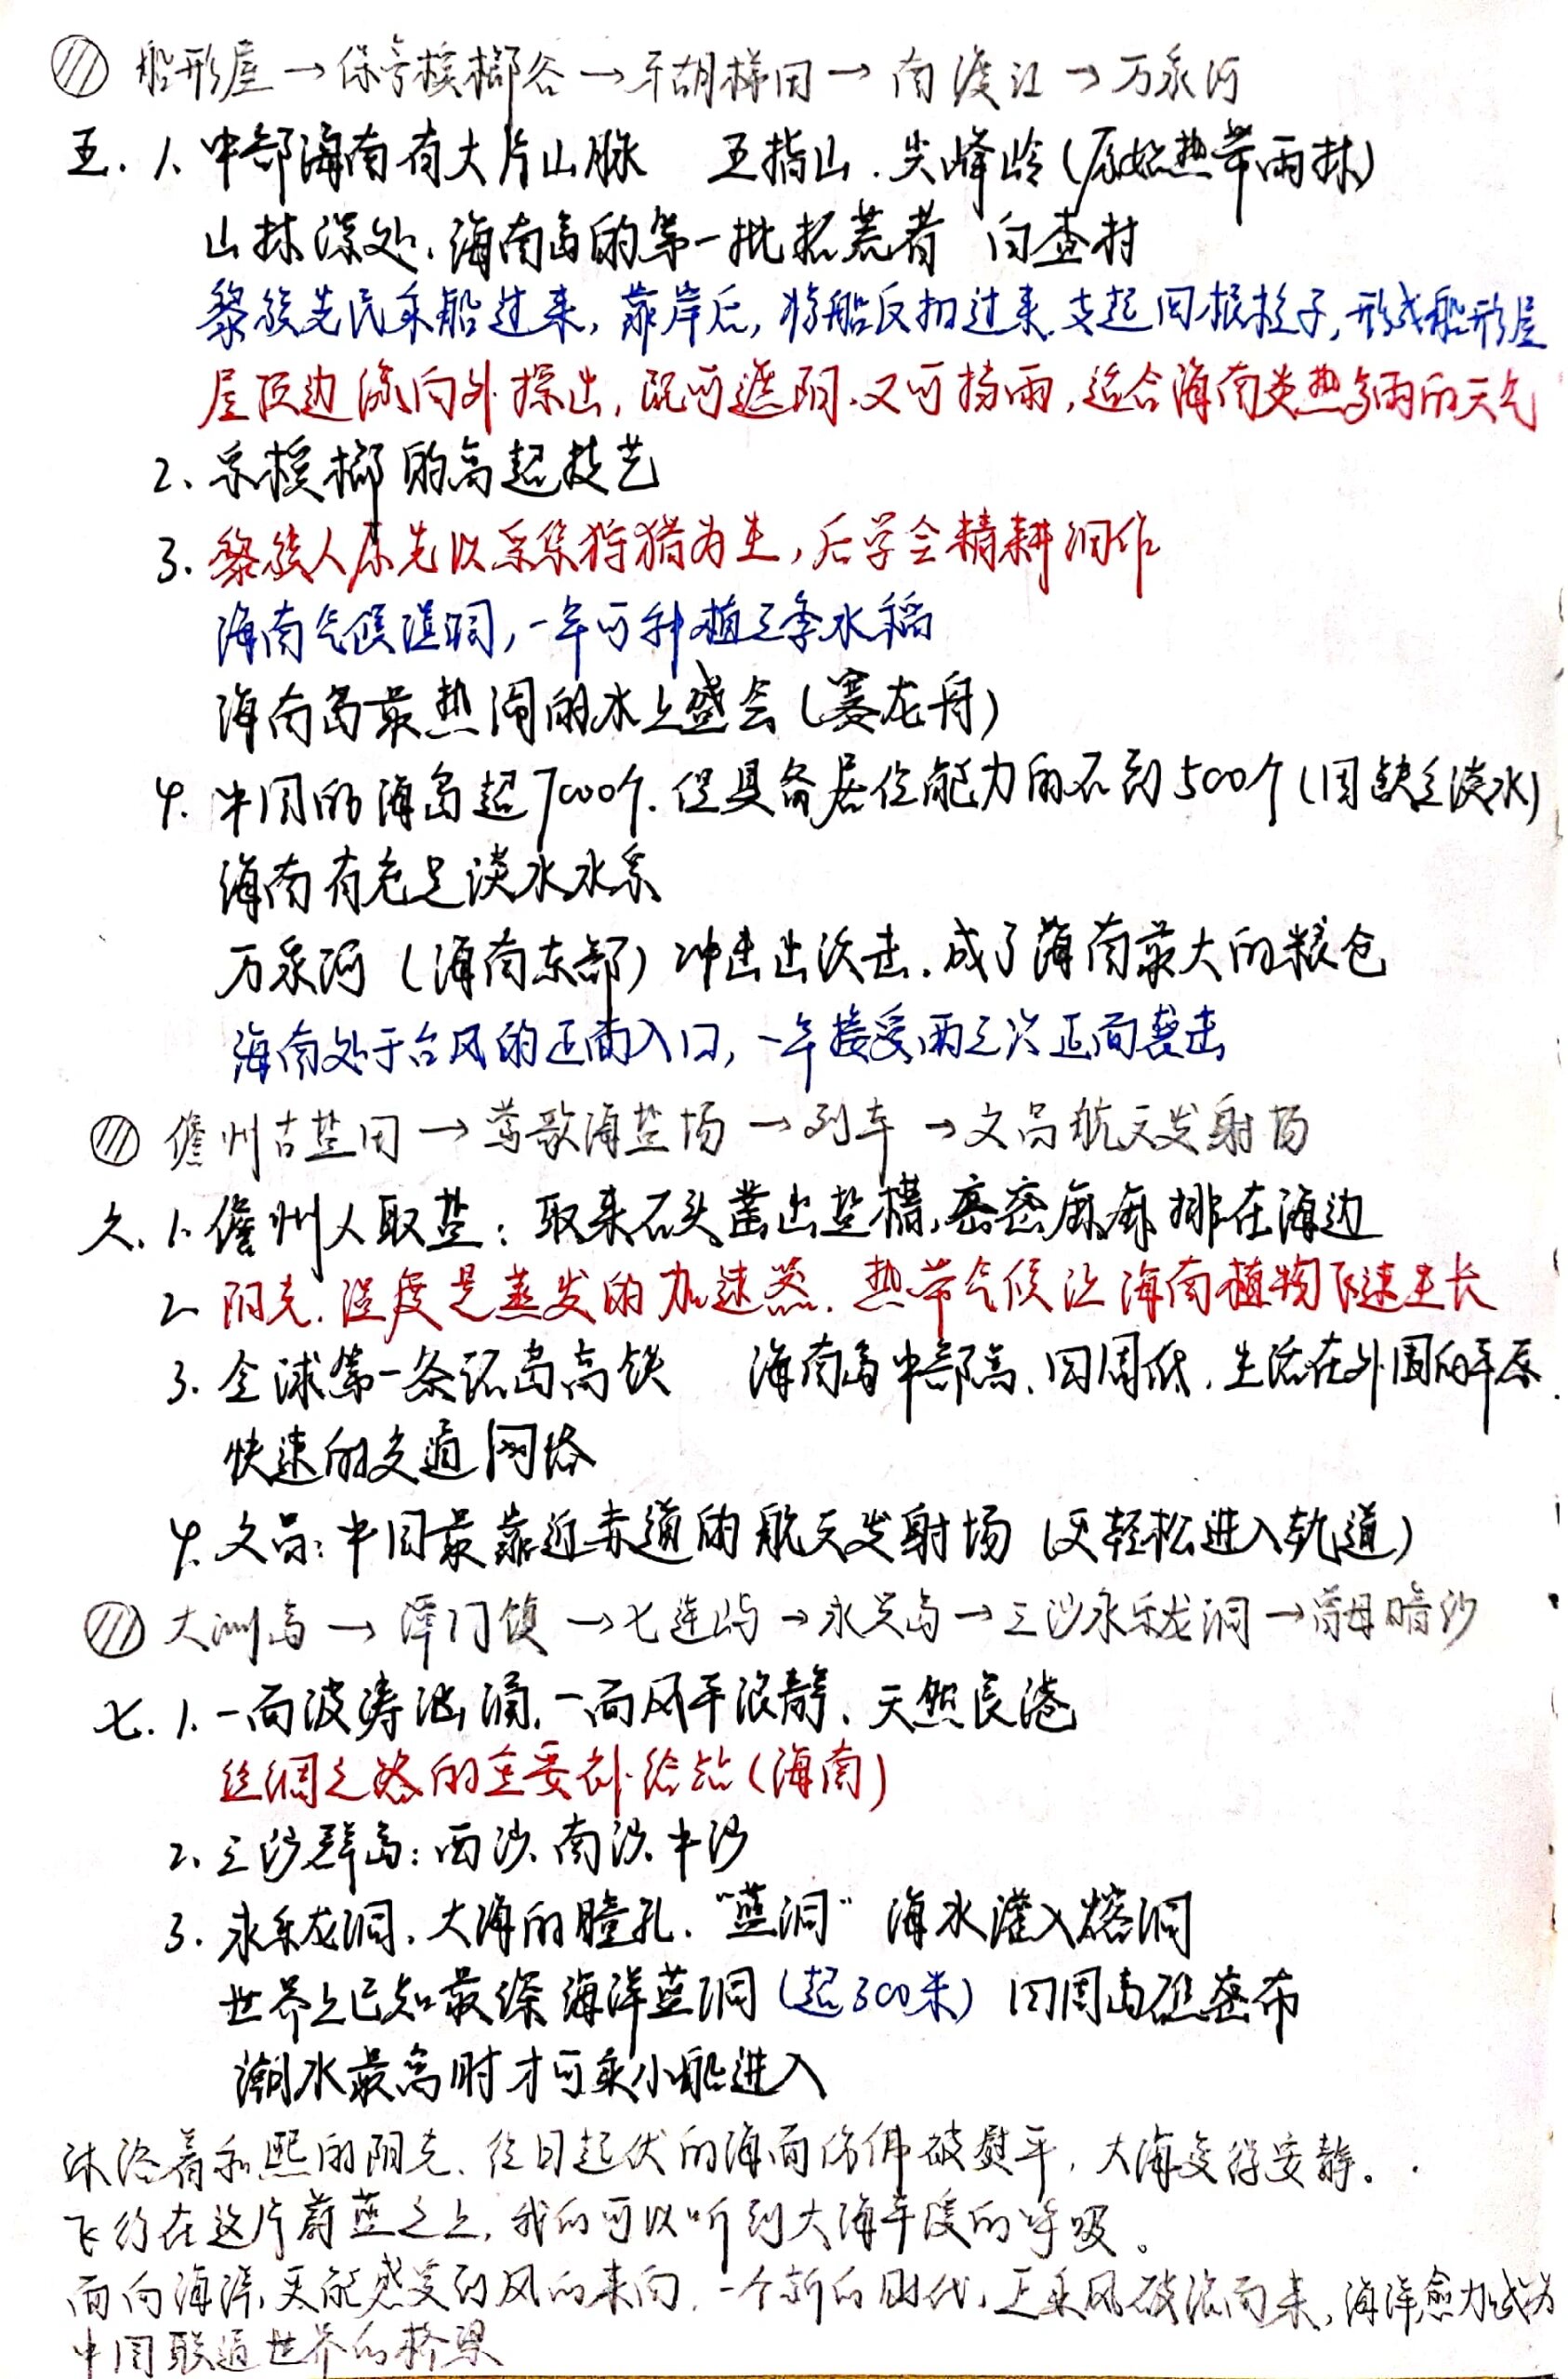 船形屋→保亭槟榔谷→牙胡梯田→南渡江→万泉河
五. 1. 中部海南有大片山脉 五指山、尖峰岭(原始热带雨林)
山林深处,海南岛的第一批拓荒者 白查村
黎族先民乘船过来,靠岸后,将船反扣过来,支起四根柱子,形成船形屋
屋顶边缘向外探出,既可遮阳、又可挡雨,适合海南炎热多雨的天气
2、采槟榔的高超技艺
3. 黎族人原先以采集狩猎为生,后学会精耕细作
海南气候湿润,一年可种植三季水稻
海南岛最热闹的水上盛会(赛龙舟)
4. 中国的海岛超7000个.但具备居住能力的不到500个(因缺乏淡水)
海南有充足淡水水系
万泉河(海南东部)冲击出沃土,成了海南最大的粮仓
海南处于台风的正面入口,一年接受两三次正面袭击
儋州古盐田→莺歌海盐场→列车→文昌航天发射场
六. 1. 儋州人取盐:取来石头凿出盐槽,密密麻麻排在海边
2. 阳光、温度是蒸发的加速器.热带气候让海南植物飞速生长
3. 全球第一条环岛高铁 海南岛中部高、四周低,生活在外围的平原.
快速的交通网络
4. 文昌:中国最靠近赤道的航天发射场(更轻松进入轨道)
大洲岛→潭门镇→七连屿→永兴岛→三沙永乐龙洞→曾母暗沙
七. 1. 一面波涛汹涌,一面风平浪静、天然良港
丝绸之路的主要补给站(海南)
2、三沙群岛:西沙、南沙、中沙
3. 永乐龙洞,大海的瞳孔.“蓝洞” 海水灌入熔洞
世界上已知最深海洋蓝洞(超300米) 四周岛礁密布
潮水最高时才可乘小船进入
沐浴着和熙的阳光、往日起伏的海面仿佛被熨平,大海变得安静。
飞行在这片蔚蓝之上,我们可以听到大海平缓的呼吸。
面向海洋,更能感受到风的来向.一个新的时代,正乘风破浪而来,海洋愈加成为
中国联通世界的桥梁